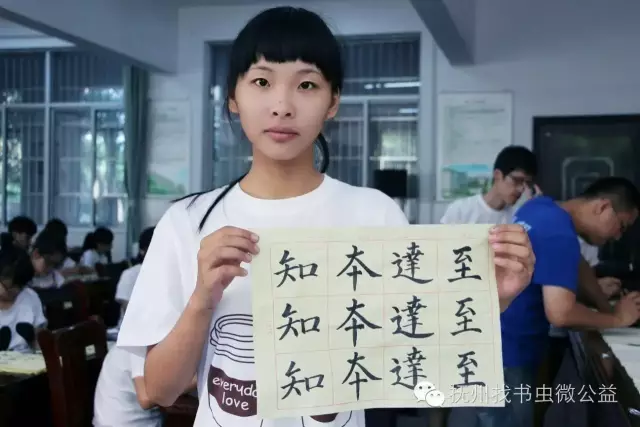 知本達至
知本達至
知本達至
everyda
love
抚州找书虫微公益